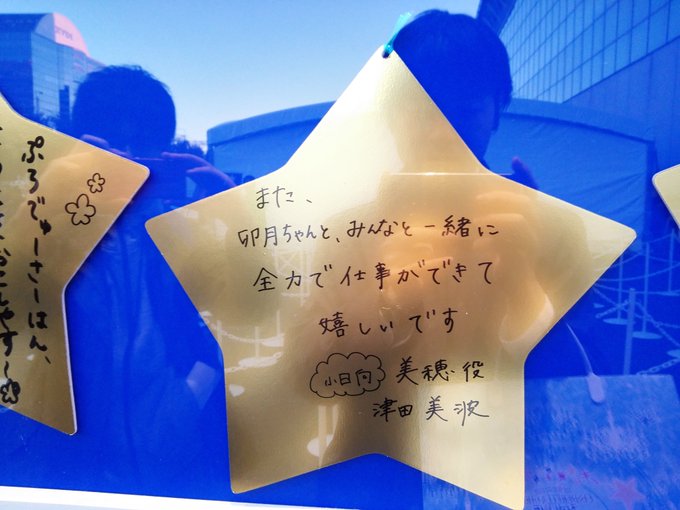 また、
卯月ちゃんと、みんなと一緒に
全力で仕事ができて
嬉しいです
小日向 美穂役
津田美波
ぷろでゅーさーはん、